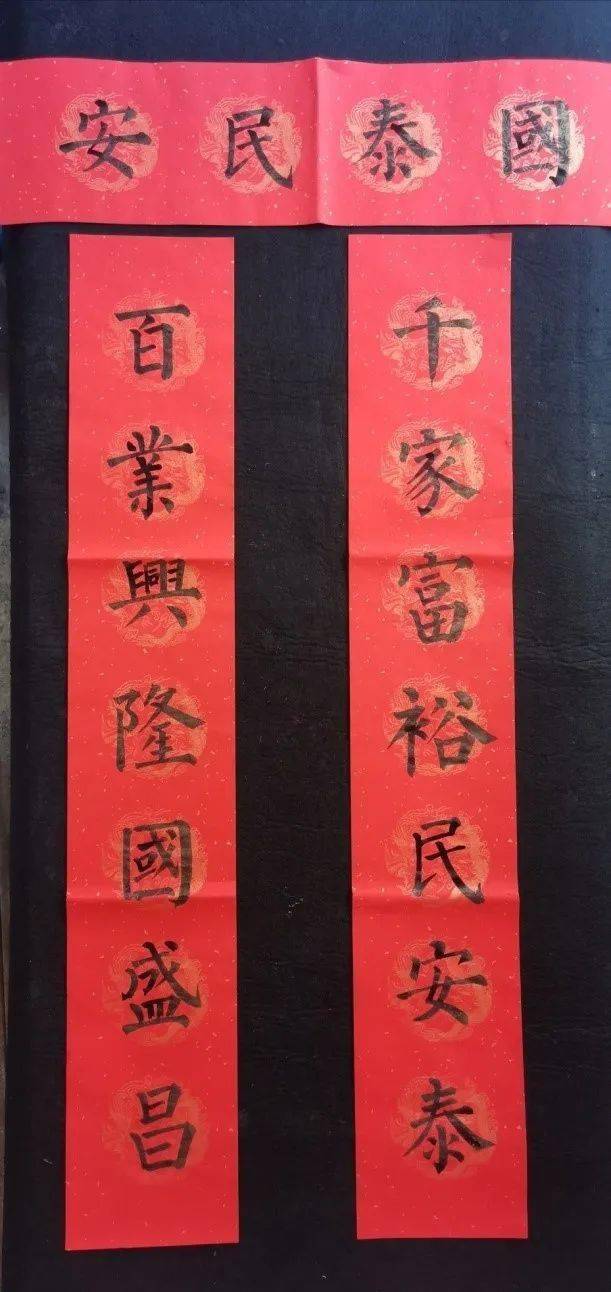 國泰民安
千家富裕民安泰
百業興隆國盛昌